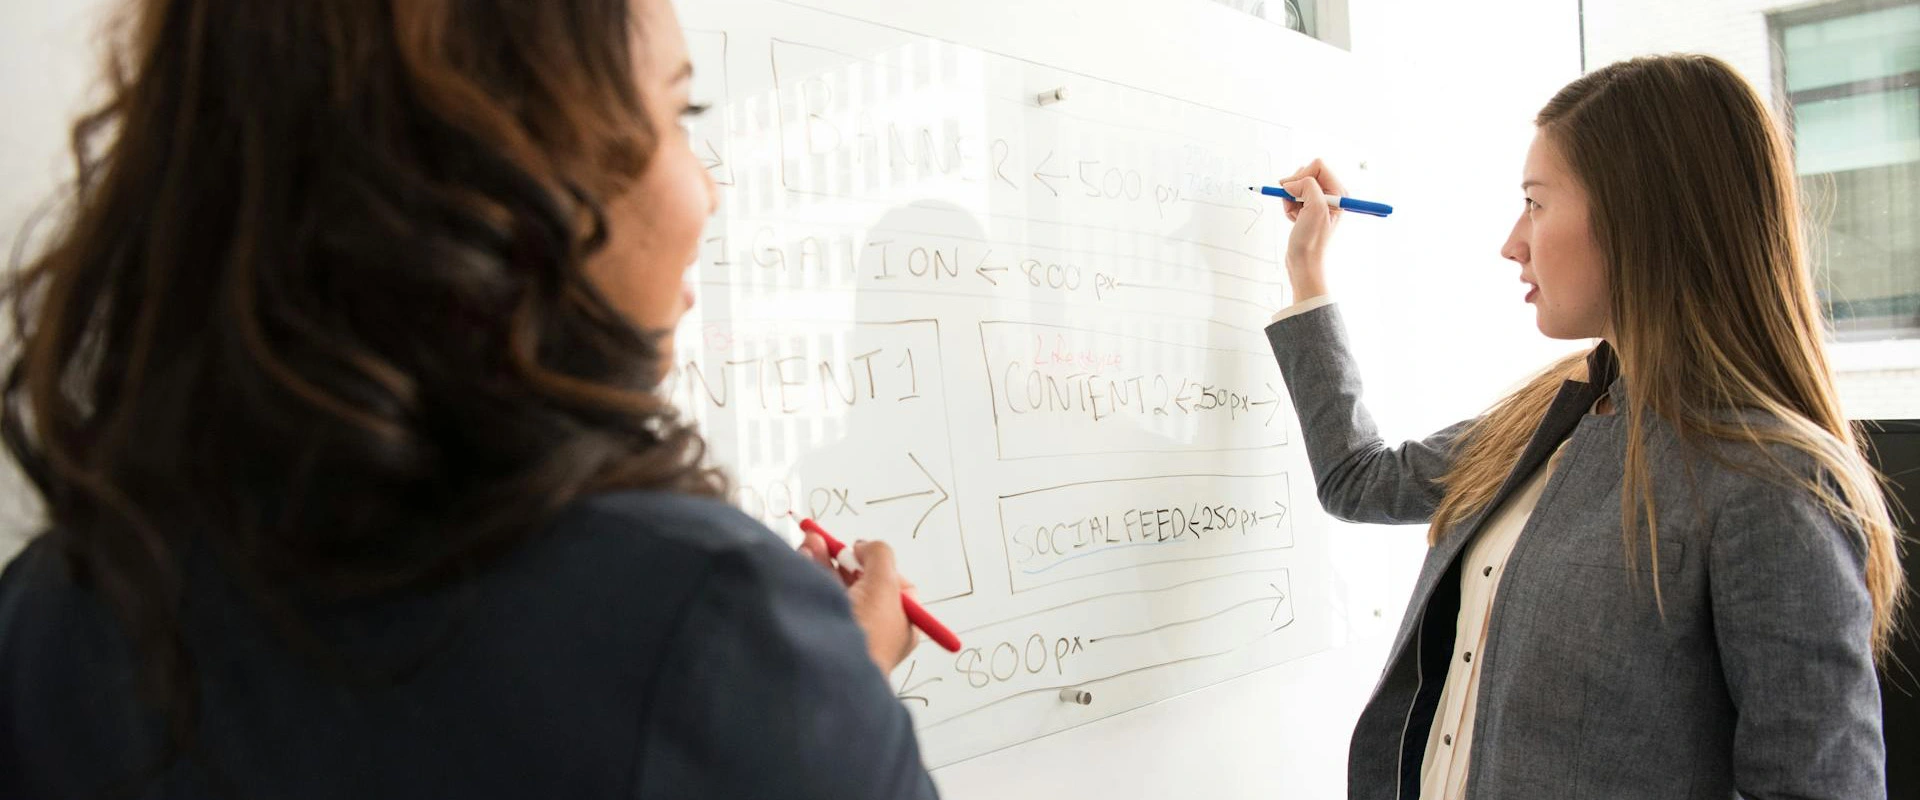 BANNER ← 500 px
IGATION ← 800 px
NTENT 1
Lifestyle
CONTENT 2 ← 250px →
px →
SOCIAL FEED ← 250px →
← 800px